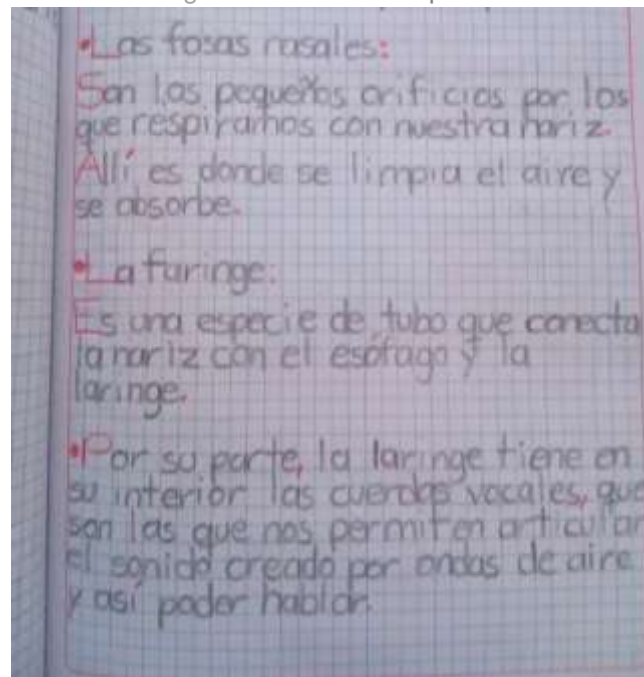 •Las fosas nasales:
Son los pequeños orificios por los
que respiramos con nuestra nariz.
Allí es donde se limpia el aire y
se absorbe.
•La faringe:
Es una especie de tubo que conecta
la nariz con el esófago y la
laringe.
•Por su parte, la laringe tiene en
su interior las cuerdas vocales, que
son las que nos permiten articular
el sonido creado por ondas de aire
y así poder hablar.